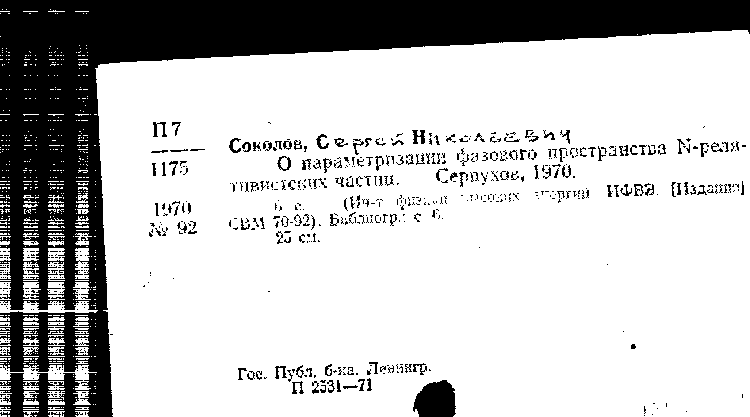 П 7
1175
1970
№ 92
Соколов, Сергей Николаевич
О параметризации фазового пространства N-реля-
тивистских частиц. Серпухов, 1970.
6 с. (Ин-т физики высоких энергий ИФВЭ. [Издание]
СВМ 70-92). Библиогр.: с 6.
25 см.
Гос. Публ. б-ка. Ленингр.
П 2531—71